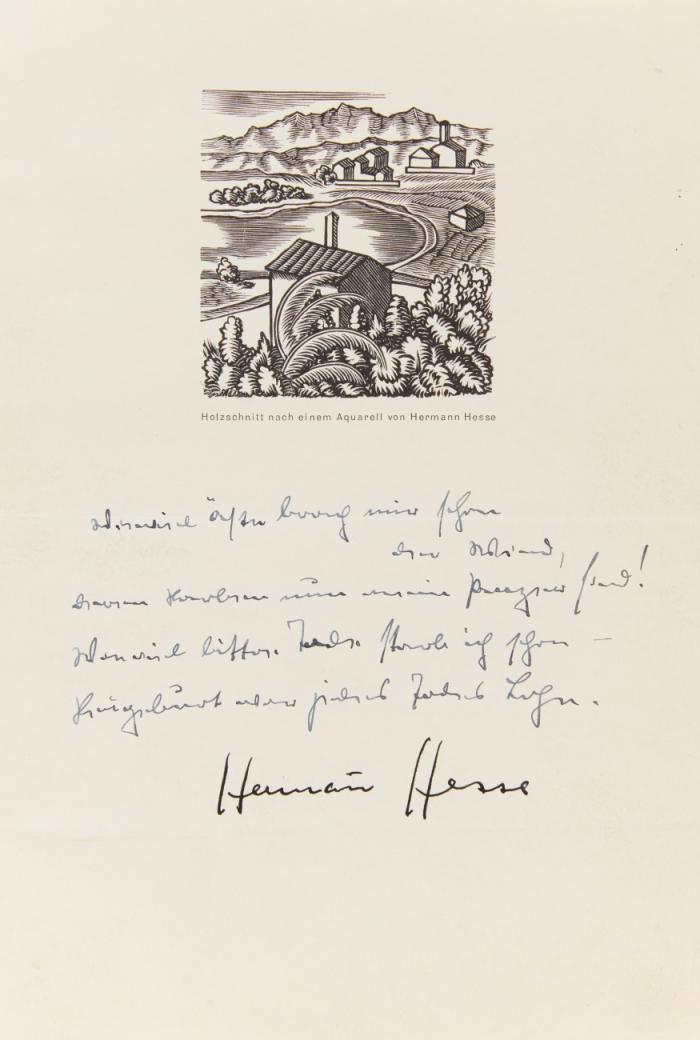 Holzschnitt nach einem Aquarell von Hermann Hesse
Wieviel Äste brach mir schon
der Wind,
deren Narben nun meine Panzer sind!
Wieviel bittre Tode starb ich schon –
Neugeburt war jedes Todes Lohn.
Hermann Hesse